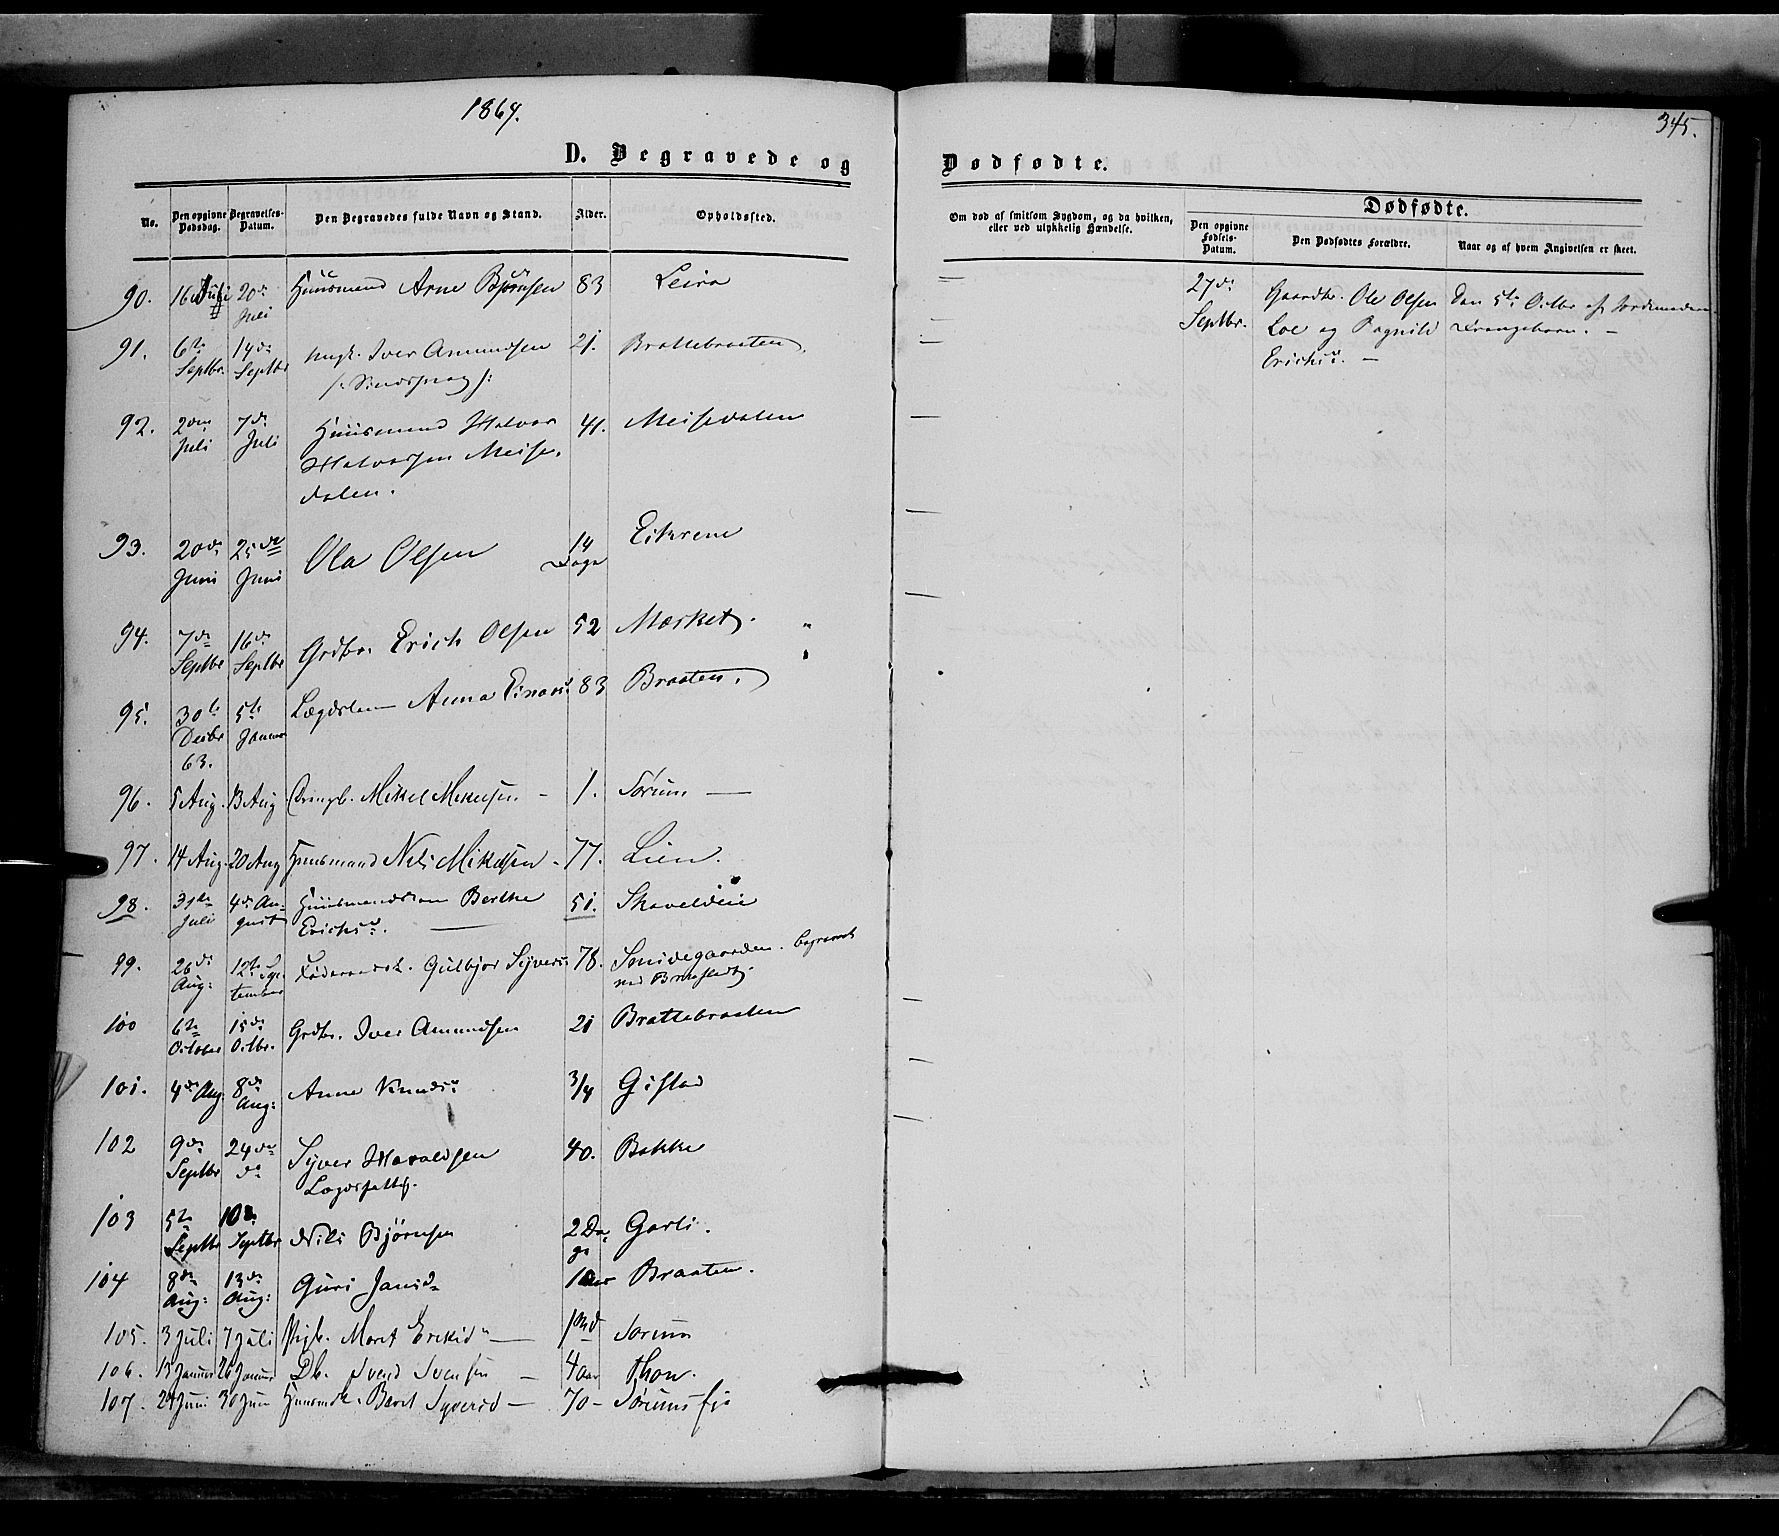 1864.
345.
D. Begravede og
Dødfødte.
No.
Den opgivne Dødsdag.
Begravelses-Datum.
Den Begravedes fulde Navn og Stand.
Alder.
Opholdssted.
Om død af smitsom Sygdom, og da hvilken, eller ved ulykkelig Hændelse.
Dødfødte.
Den opgivne Fødsels-Datum.
Den Dødfødtes Forældre.
Naar og af hvem Angivelsen er skeet.
90. 16 Juli 20de Juli Huusmand Arne Bjørnsen 83 Leira
27de Septbr. Gaardbr. Ole Olsen Loe og Ragnild Erichsd. —
Den 5te Octbr af Jordemoderen
91. 6te Septbr. 14de Septbr Ungk. Iver Amundsen 21. Brattebraaten
/: Sindssvag /:
92. 2den Juli 7de Juli Huusmand Halvor 41. Meisedalen
Halvorsen Meise-
dalen.
93. 20de Juni 25de Juni Ola Olsen 14 Dage Eikrene
94. 7de Septbr 16de Septbr Grdbr. Erich Olsen 52 Mærket.
95. 30te Decbr 63. 5te Januar Lægdslem Anna Einarsd 83 Braaten.
96. 5 Aug. 13 Aug Mikel Mikelsen — 1. Sørum —
97. 14 Aug. 20 Aug Huusmand Nils Mikelsen — 77. Lien.
98. 31te Juli 4de August Huusmandskone Berthe 51. Skavelveie
Erichsd. —
99. 26de Aug: 12te September Føderaadsk. Gulbjør Syversd 78. Smidegaarden. begravet
ved Brufladt.
100 6te October 15de Octbr. Grdbr. Iver Amundsen 21 Brattebraaten
101. 4de Aug. 8de Aug: Anne Knudsd 3/4 Gistad
102 9de Septbr 24de do Syver Haraldsen 40. Bakke
Lægdsfattig.
103 5te Septbr 10de Septbr Nils Bjørnsen 2 Dage Garli.
104 8de Aug: 13de Aug: Guri Jansd 1 Aar Braaten.
105. 3 Juli 7 Juli Pigb. Marit Eriksd — 1 Md Sørum
106. 13 Januar 26 Januar Db. Svend Svensen — 4 aar Thon.
107. 24 Juni 30 Juni Huusmdk. Barit Syversd — 70 — Sørumseje